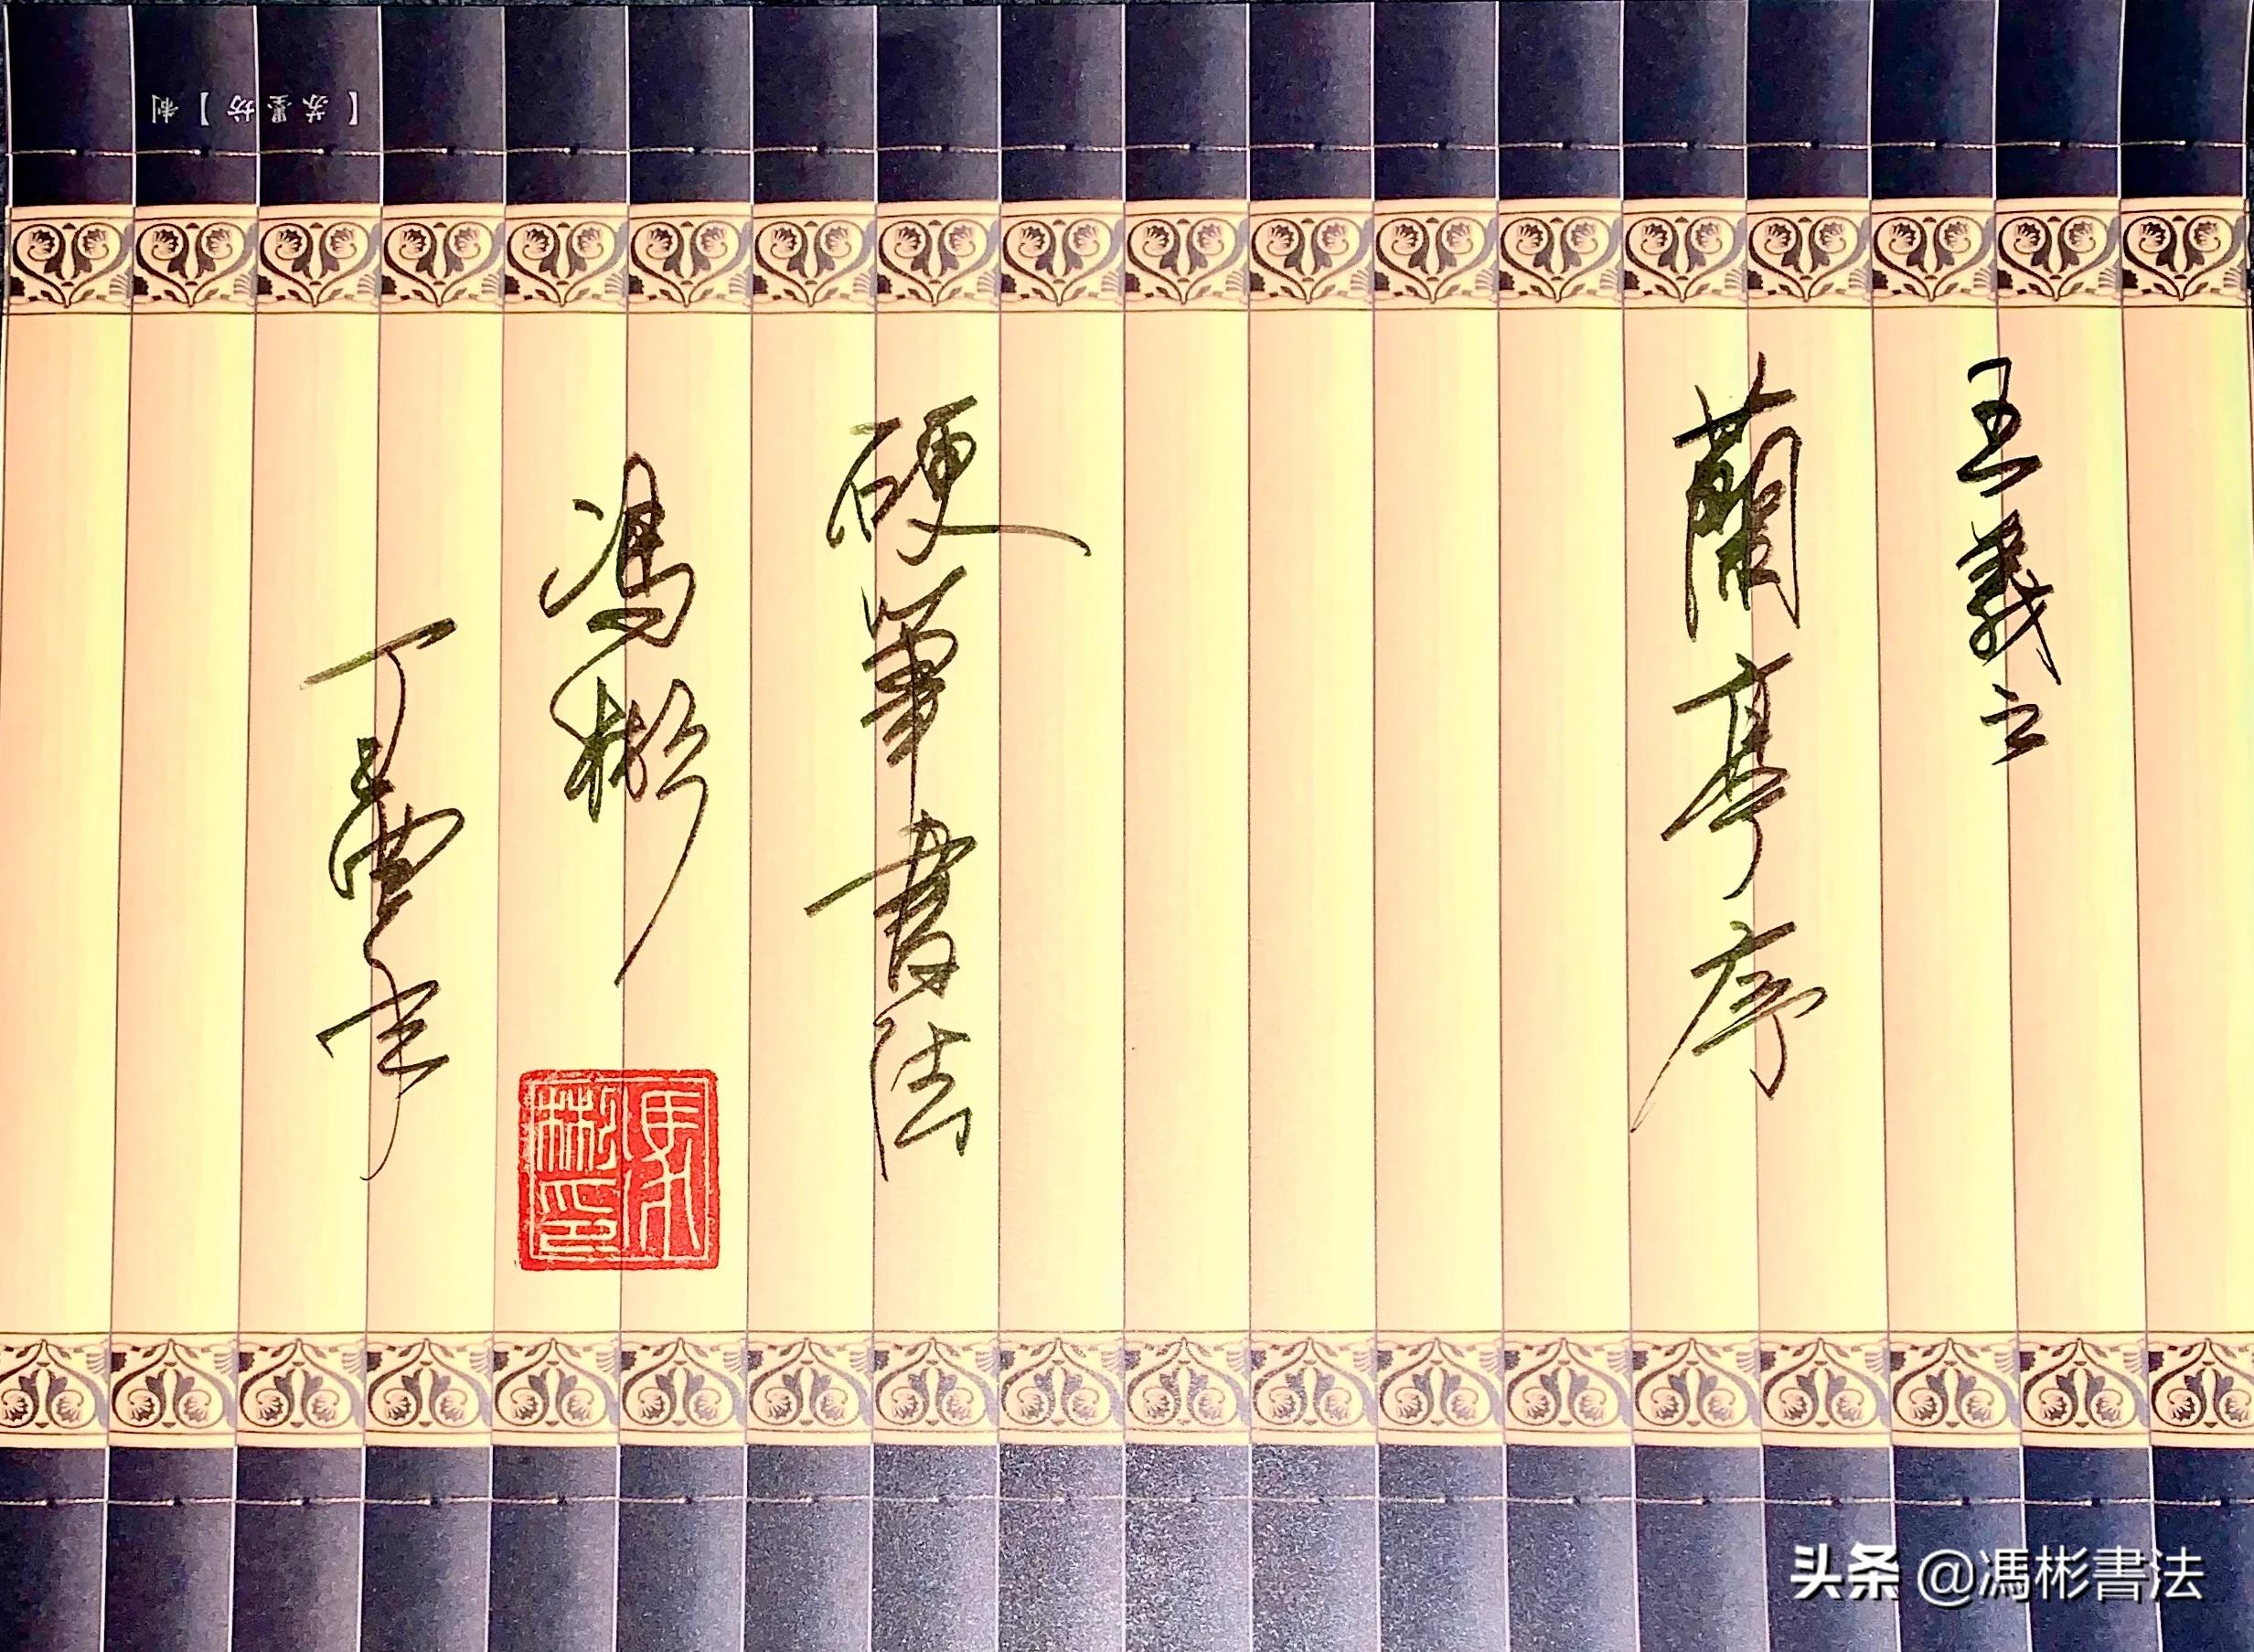 王羲之
蘭亭序
硬筆書法
馮彬
丁酉年
馮彬印
【苏墨坊】制
头条 @馮彬書法